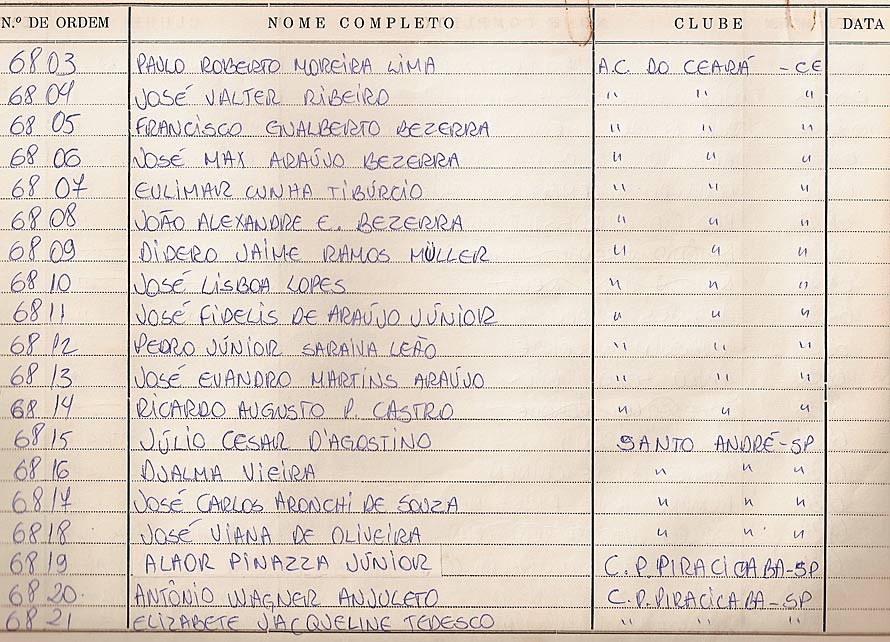 N.º DE ORDEM NOME COMPLETO CLUBE DATA
6803 PAULO ROBERTO MOREIRA LIMA A.C. DO CEARÁ - CE
6804 JOSÉ VALTER RIBEIRO " " "
6805 FRANCISCO GUALBERTO BEZERRA " " "
6806 JOSÉ MAX ARAÚJO BEZERRA " " "
6807 EULIMAR CUNHA TIBÚRCIO " " "
6808 JOÃO ALEXANDRE E. BEZERRA " " "
6809 DIDERO JAIME RAMOS MÜLLER " " "
6810 JOSÉ LISBOA LOPES " " "
6811 JOSÉ FIDELIS DE ARAÚJO JÚNIOR " " "
6812 PEDRO JÚNIOR SARAIVA LEÃO " " "
6813 JOSÉ EVANDRO MARTINS ARAÚJO " " "
6814 RICARDO AUGUSTO P. CASTRO " " "
6815 JÚLIO CESAR D'AGOSTINO SANTO ANDRÉ-SP
6816 DJALMA VIEIRA " " "
6817 JOSÉ CARLOS ARONCHI DE SOUZA " " "
6818 JOSÉ VIANA DE OLIVEIRA " " "
6819 ALAOR PINAZZA JÚNIOR C.P. PIRACICABA-SP
6820 ANTÔNIO WAGNER ANJULETO C.P. PIRACICABA-SP
6821 ELIZABETE JACQUELINE TEDESCO " " "